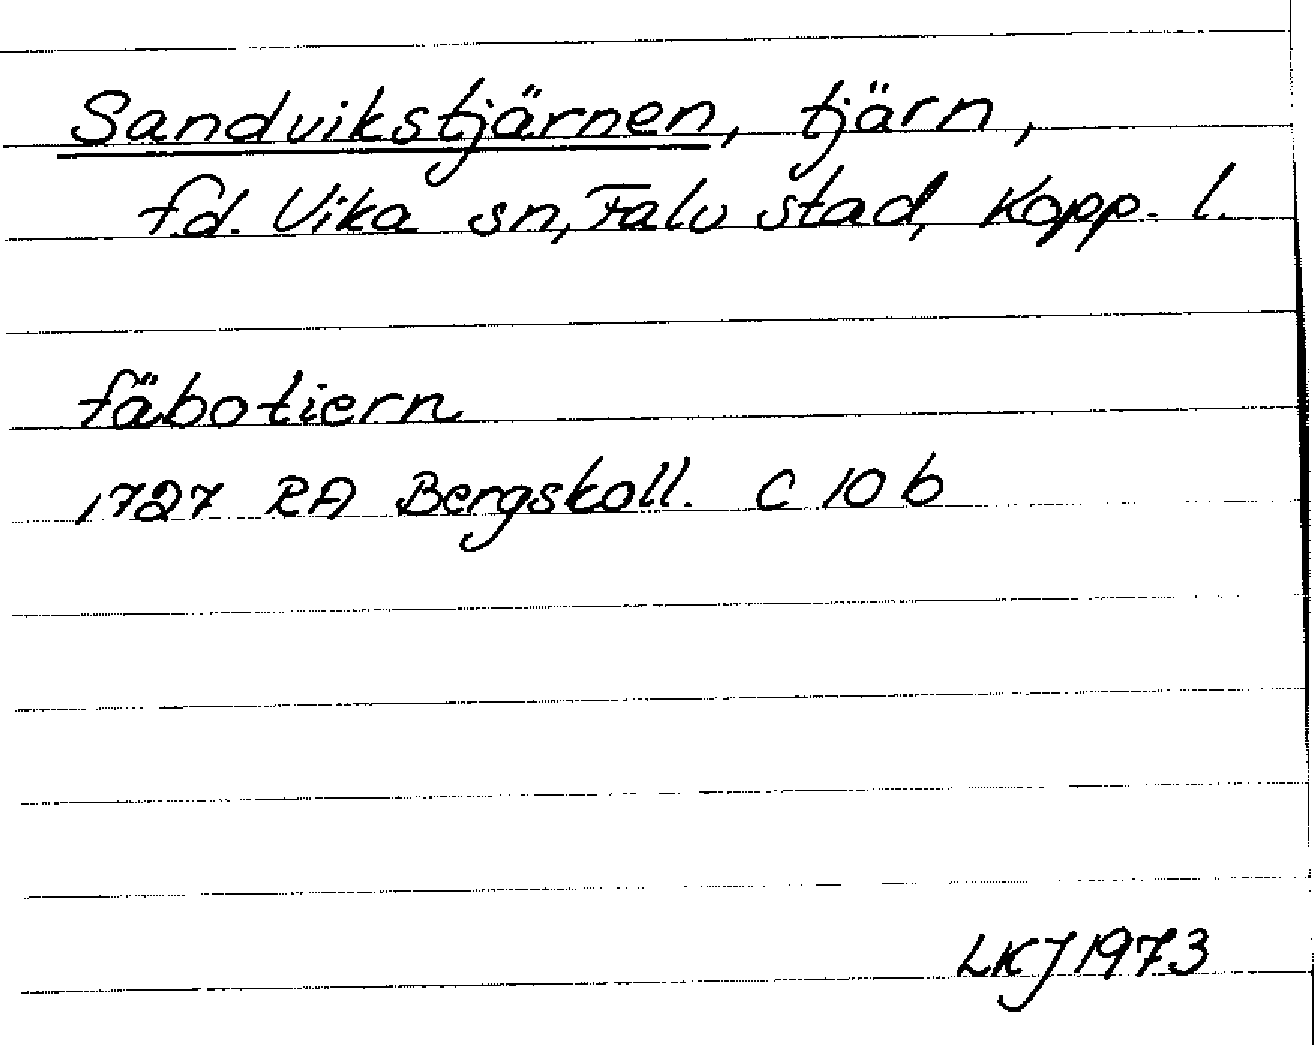 Sandvikstjärnen, tjärn,
fd. Vika sn, Falu stad, Kopp. l.
fäbotiern
1727 RA Bergskoll. C 10 b
LKJ 1973